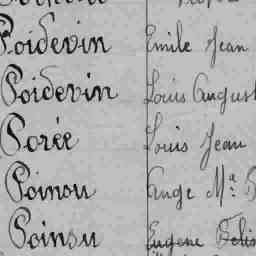 Poidevin Emile Jean
Poidevin Louis August
Porée Louis Jean
Poinsu Ange Mª
Poinsu Eugene Félis